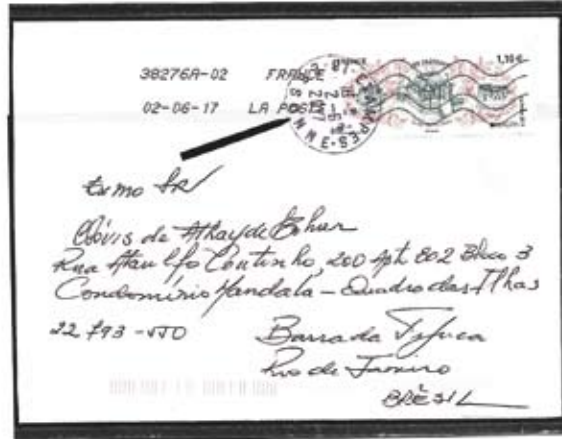 38276A-02 FRANCE
02-06-17 LA POSTE
FRANCE
1,10€
Exmo Sr
Clóvis de Athayde
Rua Ataulfo Coutinho, 200 Apt 802 Bloco 3
Condomínio Mandala - Quadra das Ilhas
22793-
Barra da Tijuca
Rio de Janeiro
BRÈSIL